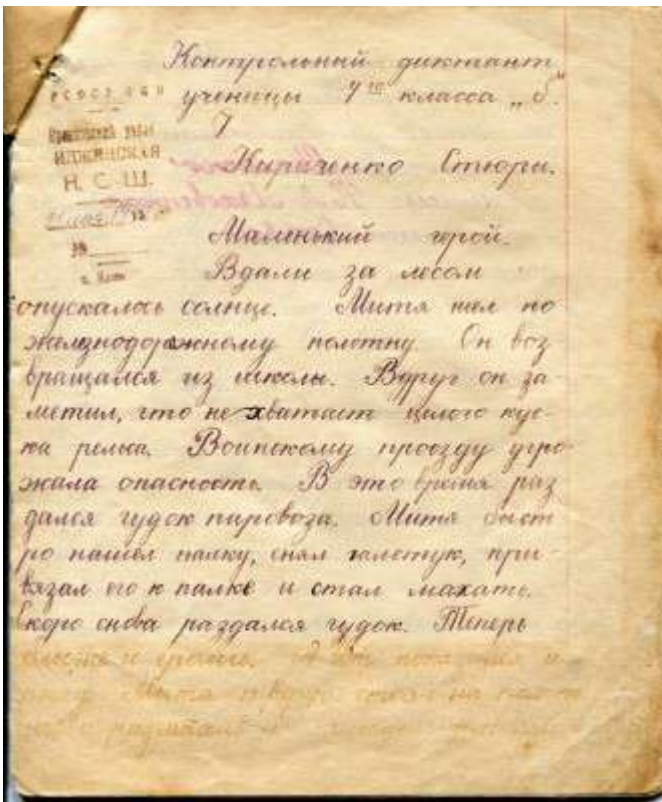 Контрольный диктант
ученицы 7го класса „б".
Кириченко Стюры.
Н. С. Ш.
Маленький герой.
Вдали за лесом
опускалось солнце. Митя шел по
железнодорожному полотну. Он воз
вращался из школы. Вдруг он за
метил, что не хватает целого кус
ка рельса. Воинскому проезду угро
жала опасность. В это время раз
дался гудок паровоза. Митя быст
ро нашел палку, снял галстук, при
вязал его к палке и стал махать.
Скоро снова раздался гудок. Теперь
Митя